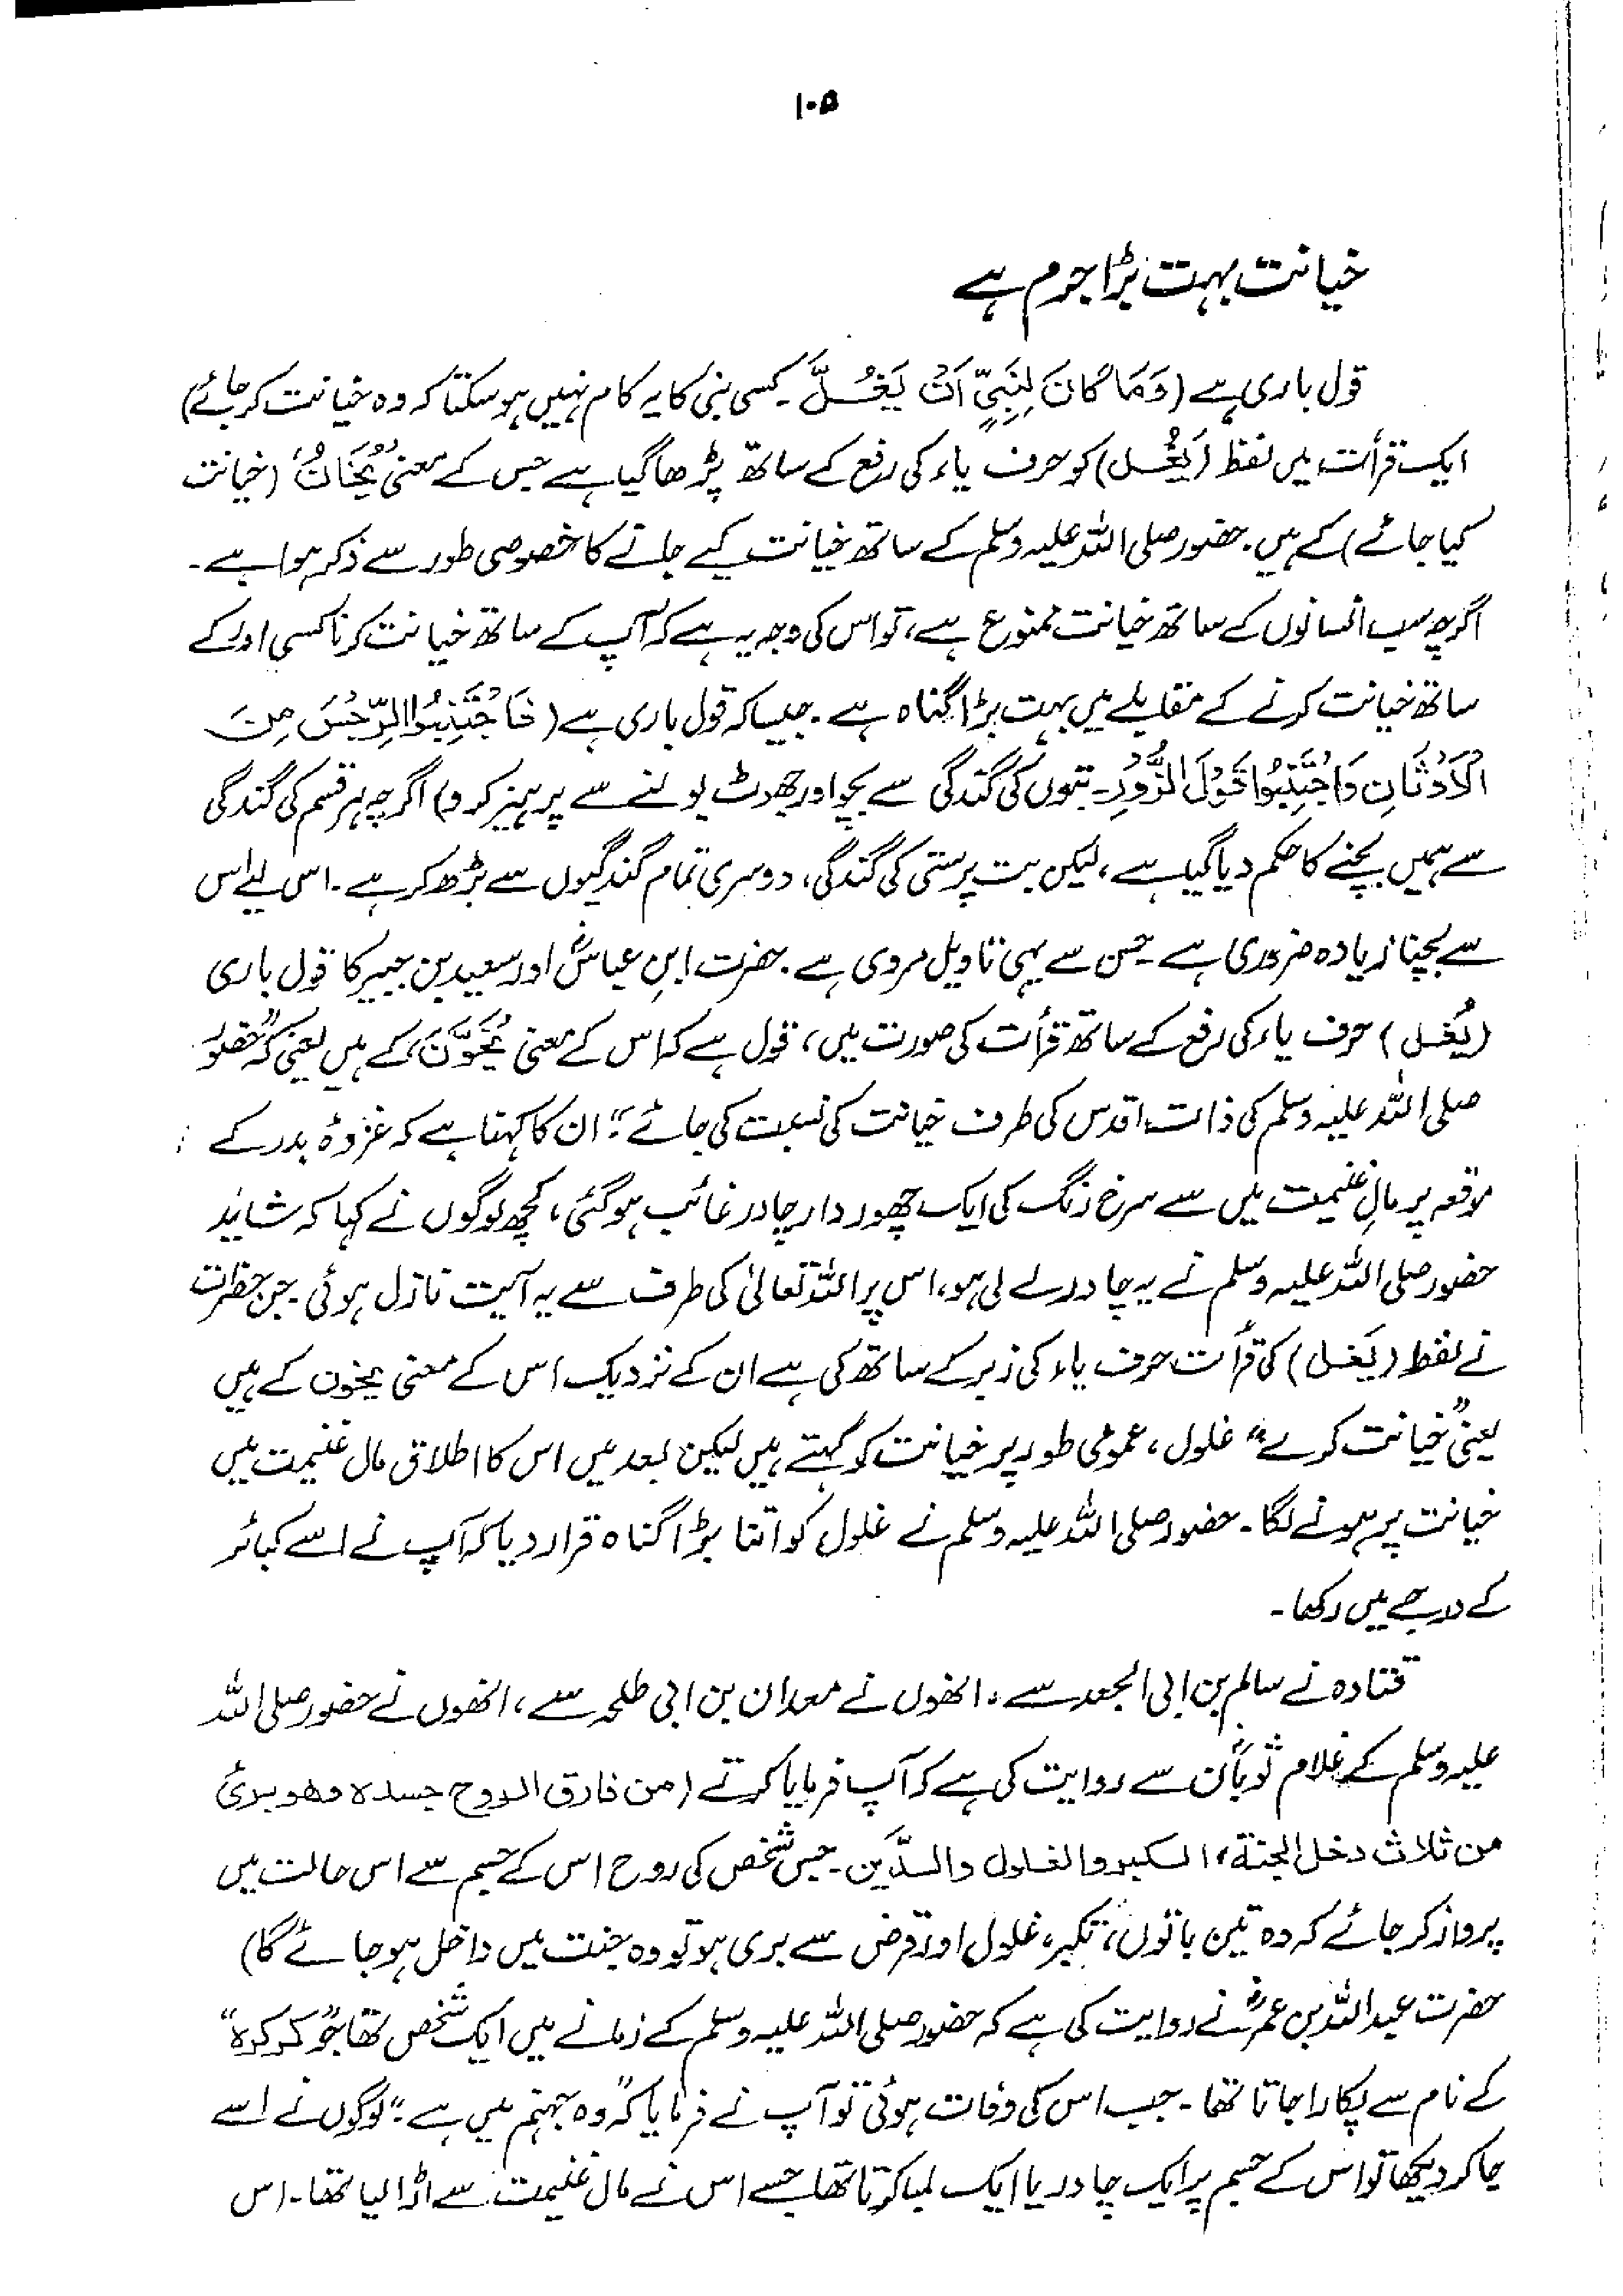 ۱۰۵
خیانت بہت بڑا جرم ہے
قول باری ہے (وَمَا كَانَ لِنَبِيٍّ اَنْ يَغُلَّ۔ کسی نبی کا یہ کام نہیں ہو سکتا کہ وہ خیانت کر جائے)
ایک قرأت میں لفظ (یُغَل) کو حرف یاء کی رفع کے ساتھ پڑھا گیا ہے جس کے معنی یُخَانُ (خیانت
کیا جائے) کے ہیں۔ حضور صلی اللہ علیہ وسلم کے ساتھ خیانت کیے جانے کا خصوصی طور سے ذکر ہوا ہے۔
اگرچہ سب انسانوں کے ساتھ خیانت ممنوع ہے، تو اس کی وجہ یہ ہے کہ آپ کے ساتھ خیانت کرنا کسی اور کے
ساتھ خیانت کرنے کے مقابلے میں بہت بڑا گناہ ہے۔ جیسا کہ قول باری ہے (فَاجْتَنِبُوا الرِّجْسَ مِنَ
الْاَوْثَانِ وَاجْتَنِبُوْا قَوْلَ الزُّوْرِ۔ بتوں کی گندگی سے بچو اور جھوٹ بولنے سے پرہیز کرو) اگرچہ ہر قسم کی گندگی
سے ہمیں بچنے کا حکم دیا گیا ہے، لیکن بت پرستی کی گندگی، دوسری تمام گندگیوں سے بڑھ کر ہے۔ اس لیے اس
سے بچنا زیادہ ضروری ہے۔ حسن سے یہی تاویل مروی ہے۔ حضرت ابن عباسؓ اور سعید بن جبیر کا قول باری
(یُغَل) حرف یاء کی رفع کے ساتھ قرأت کی صورت میں، قول ہے کہ اس کے معنی یُخَوَّنَ کے ہیں یعنی کہ "حضور
صلی اللہ علیہ وسلم کی ذات اقدس کی طرف خیانت کی نسبت کی جائے"۔ ان کا کہنا ہے کہ غزوۂ بدر کے
موقعہ پر مالِ غنیمت میں سے سرخ رنگ کی ایک چھور دار چادر غائب ہو گئی، کچھ لوگوں نے کہا کہ شاید
حضور صلی اللہ علیہ وسلم نے یہ چادر لے لی ہو، اس پر اللہ تعالیٰ کی طرف سے یہ آیت نازل ہوئی۔ جن حضرات
نے لفظ (یَغل) کی قرأت حرف یاء کی زبر کے ساتھ کی ہے ان کے نزدیک اس کے معنی یخون کے ہیں
یعنی "خیانت کرے" غلول، عمومی طور پر خیانت کو کہتے ہیں لیکن بعد میں اس کا اطلاق مال غنیمت میں
خیانت پر ہونے لگا۔ حضور صلی اللہ علیہ وسلم نے غلول کو اتنا بڑا گناہ قرار دیا کہ آپ نے اسے کبائر
کے درجے میں رکھا۔
قتادہ نے سالم بن ابی الجعد سے، انھوں نے معدان بن ابی طلحہ سے، انھوں نے حضور صلی اللہ
علیہ وسلم کے غلام ثوبانؓ سے روایت کی ہے کہ آپ فرمایا کرتے (من فارق الروح جسدہ وھو بریٔ
من ثلاث دخل الجنة، الکبر والغلول والدَّین۔ جس شخص کی روح اس کے جسم سے اس حالت میں
پرواز کر جائے کہ وہ تین باتوں، تکبر، غلول اور قرض سے بری ہو تو وہ جنت میں داخل ہو جائے گا)
حضرت عبداللہ بن عمرؓ نے روایت کی ہے کہ حضور صلی اللہ علیہ وسلم کے زمانے میں ایک شخص تھا جو "کرکرہ"
کے نام سے پکارا جاتا تھا۔ جب اس کی وفات ہوئی تو آپ نے فرمایا کہ "وہ جہنم میں ہے"۔ لوگوں نے اسے
جا کر دیکھا تو اس کے جسم پر ایک چادر یا ایک لمبا کرتا تھا جسے اس نے مال غنیمت سے اڑا لیا تھا۔ اس